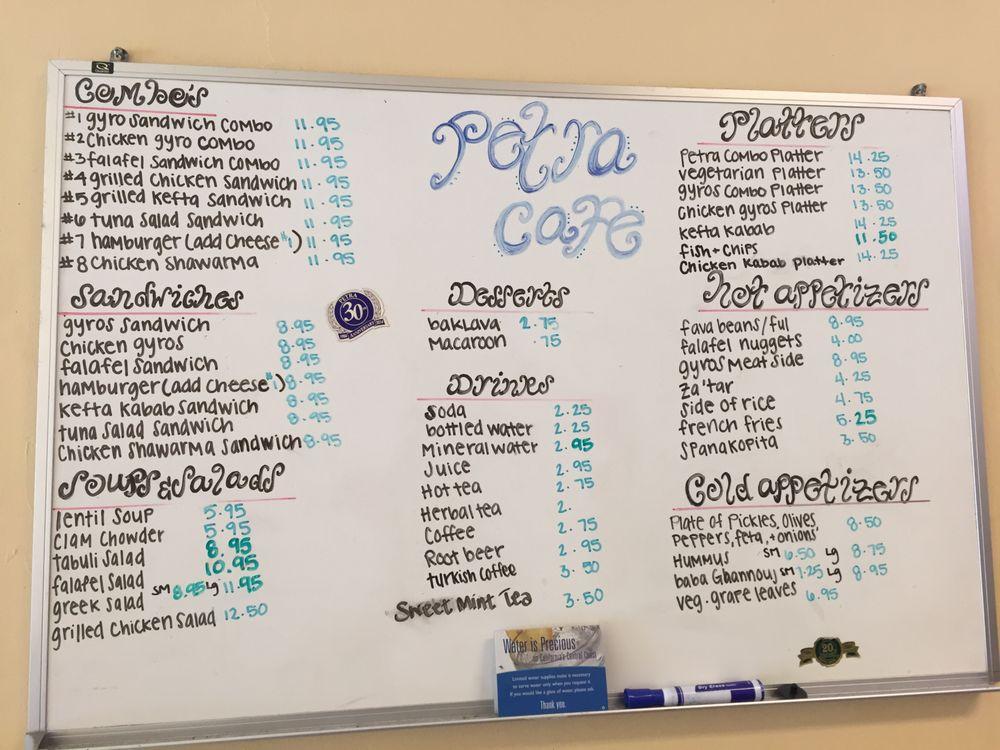 Combo's
#1 gyro sandwich combo 11.95
#2 Chicken gyro combo 11.95
#3 falafel sandwich combo 11.95
#4 grilled Chicken sandwich 11.95
#5 grilled kefta sandwich 11.95
#6 tuna salad sandwich 11.95
#7 hamburger (add cheese $1) 11.95
#8 Chicken shawarma 11.95
Sandwiches
gyros sandwich 8.95
Chicken gyros 8.95
falafel sandwich 8.95
hamburger (add cheese $1) 8.95
kefta kabab sandwich 8.95
tuna salad sandwich 8.95
Chicken shawarma sandwich 8.95
Soups & Salads
lentil soup 5.95
Clam chowder 5.95
tabuli salad 8.95
falafel salad 10.95
greek salad sm 8.95 lg 11.95
grilled chicken salad 12.50
Petra
Cafe
PETRA
30
ANNIVERSARY
Desserts
baklava 2.75
Macaroon .75
Drinks
Soda 2.25
bottled water 2.25
Mineral water 2.95
Juice 2.95
Hot tea 2.75
Herbal tea 2.
Coffee 2.75
Root beer 2.95
turkish coffee 3.50
Sweet Mint Tea 3.50
Platters
Petra combo Platter 14.25
vegetarian Platter 13.50
gyros combo Platter 13.50
chicken gyros Platter 13.50
kefta kabab 14.25
fish + chips 11.50
Chicken kabab platter 14.25
hot appetizers
fava beans/ful 8.95
falafel nuggets 4.00
gyros meat side 8.95
za'tar 4.25
side of rice 4.75
french fries 5.25
spanakopita 3.50
Cold appetizers
Plate of Pickles, Olives 8.50
peppers, feta, + onions
Hummus sm 6.50 lg 8.75
baba Ghannouj sm 7.25 lg 8.95
veg. grape leaves 6.95
Water is Precious
on California's Central Coast
Limited water supplies make it necessary
to serve water only when you request it.
If you would like a glass of water, please ask.
Thank you.
Dry Erase
20